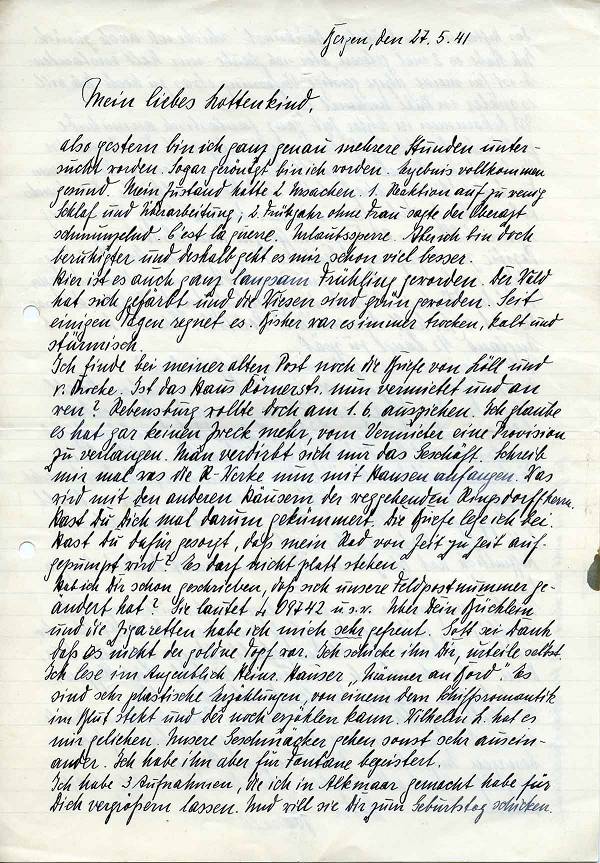 Bergen, den 27.5.41
Mein liebes Lottenkind,
also gestern bin ich ganz genau mehrere Stunden unter-
sucht worden. Sogar geröntgt bin ich worden. Ergebnis vollkommen
gesund. Mein Zustand hätte 2 Ursachen. 1. Reaktion auf zu wenig
Schlaf und Überarbeitung, 2. Frühjahr ohne Frau sagte der Oberarzt
schmunzelnd. C'est la guerre. Urlaubssperre. Aber ich bin doch
beruhigter und deshalb geht es mir schon viel besser.
Hier ist es auch ganz langsam Frühling geworden. Der Wald
hat sich gefärbt und die Wiesen sind grün geworden. Seit
einigen Tagen regnet es. Bisher war es immer trocken, kalt und
stürmisch.
Ich finde bei meiner alten Post noch die Briefe von Löll und
v. Brocke. Ist das Haus Körnerstr. nun vermietet und an
wen? Rebensburg wollte doch am 1.6. ausziehen. Ich glaube
es hat gar keinen Zweck mehr, vom Vermieter eine Provision
zu verlangen. Man verdirbt sich nur das Geschäft. Schreib
mir mal was die R-Werke nun mit Hausen anfangen. Was
wird mit den anderen Häusern der weggehenden Rengsdorffherrn.
Hast Du Dich mal darum gekümmert, Die Briefe lege ich bei.
Hast Du dafür gesorgt, daß mein Rad von Zeit zu Zeit auf-
gepumpt wird? Es darf nicht platt stehen.
Hat ich Dir schon geschrieben, daß sich unsere Feldpostnummer ge-
ändert hat? Sie lautet L 08742 u.s.w. Über Dein Büchlein
und die Zigaretten habe ich mich sehr gefreut. Gott sei Dank
daß es nicht der goldne Topf war. Ich schicke ihn Dir, urteile selbst.
Ich lese im Augenblick Heinr. Hauser „Männer an Bord". Es
sind sehr plastische Erzählungen, von einem dem Schiffsromantik
im Blut steht und der noch erzählen kann. Wilhelm L. hat es
mir geliehen. Unsere Geschmäcker gehen sonst sehr ausein-
ander. Ich habe ihn aber für Fontane begeistert.
Ich habe 3 Aufnahmen, die ich in Alkmaar gemacht habe für
Dich vergrößern lassen. Und will sie Dir zum Geburtstag schicken.